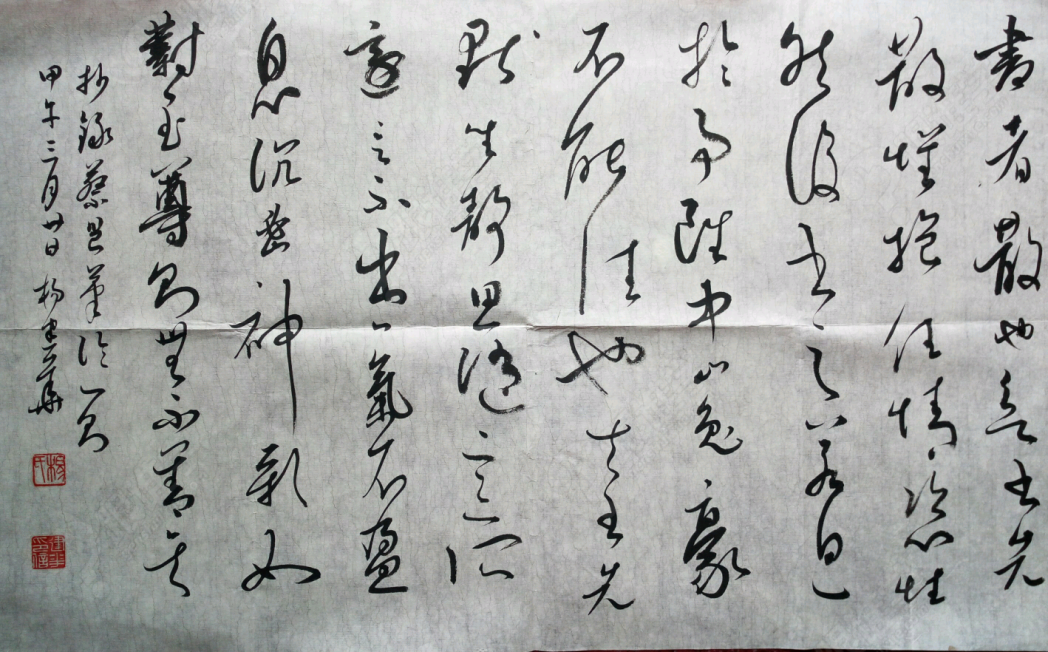 書者散也欲書先
散懷抱任情恣性
然後書之若迫
於事雖中山兔豪
不能佳也夫書先
默坐靜思隨意所
適言不出口氣不盈
息沉密神彩如
對至尊則無不善矣
抄錄蔡邕筆論一則
甲午三月廿日 楊建華
楊氏